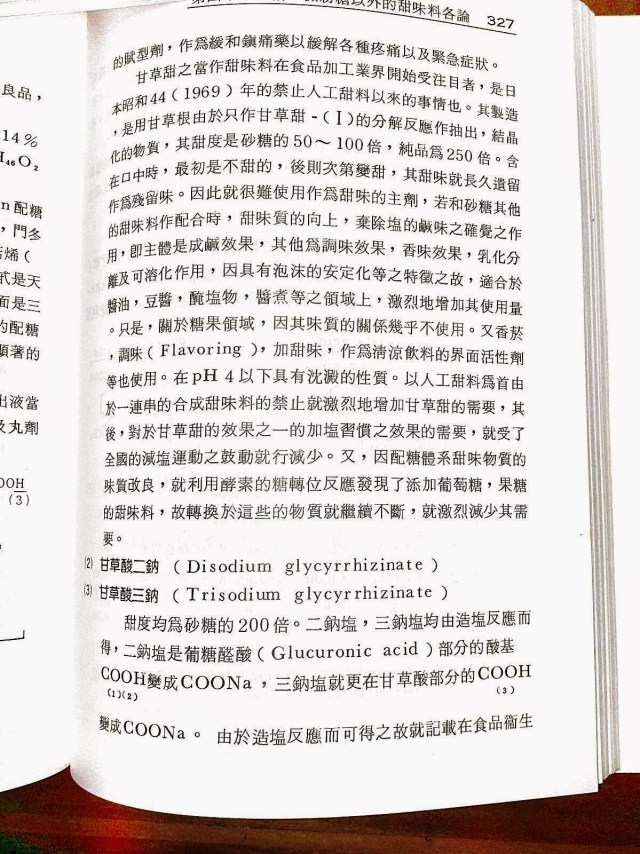 以外的甜味料各論 327
的賦型劑,作爲緩和鎭痛藥以緩解各種疼痛以及緊急症狀。
甘草甜之當作甜味料在食品加工業界開始受注目者,是日
本昭和44(1969)年的禁止人工甜料以來的事情也。其製造
,是用甘草根由於只作甘草甜-(I)的分解反應作抽出,結晶
化的物質,其甜度是砂糖的50～100倍,純品爲250倍。含
在口中時,最初是不甜的,後則次第變甜,其甜味就長久遺留
作爲殘留味。因此就很難使用作爲甜味的主劑,若和砂糖其他
的甜味料作配合時,甜味質的向上,棄除塩的鹹味之確覺之作
用,卽主體是成鹹效果,其他爲調味效果,香味效果,乳化分
離及可溶化作用,因具有泡沫的安定化等之特徵之故,適合於
醬油,豆醬,醃塩物,醬煮等之領域上,激烈地增加其使用量
。只是,關於糖果領域,因其味質的關係幾乎不使用。又香菸
,調味(Flavoring),加甜味,作爲清涼飲料的界面活性劑
等也使用。在pH 4以下具有沈澱的性質。以人工甜料爲首由
於一連串的合成甜味料的禁止就激烈地增加甘草甜的需要,其
後,對於甘草甜的效果之一的加塩習慣之效果的需要,就受了
全國的減塩運動之鼓動就行減少。又,因配糖體系甜味物質的
味質改良,就利用酵素的糖轉位反應發現了添加葡萄糖,果糖
的甜味料,故轉換於這些的物質就繼續不斷,就激烈減少其需
要。
(2) 甘草酸二鈉 (Disodium glycyrrhizinate)
(3) 甘草酸三鈉 (Trisodium glycyrrhizinate)
甜度均爲砂糖的200倍。二鈉塩,三鈉塩均由造塩反應而
得,二鈉塩是葡糖醛酸(Glucuronic acid)部分的酸基
COOH變成COONa,三鈉塩就更在甘草酸部分的COOH
(1)(2) (3)
變成COONa。由於造塩反應而可得之故就記載在食品衞生
良品,
14%
H₄₆O₂
n配糖
,門冬
烯(
式是天
面是三
的配糖
顯著的
出液當
及丸劑
OOH
(3)